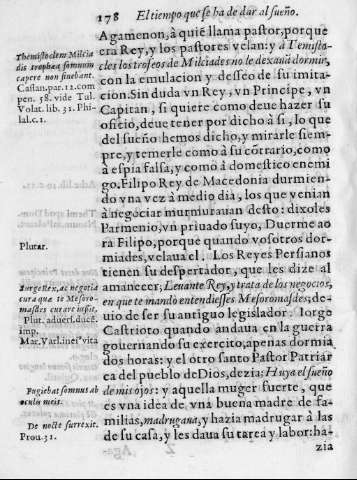 178 El tiempo que se ha de dar al sueño.
Agamenon, à quiẽ llama pastor, porque
era Rey, y los pastores velan: y à Temisto-
cles los trofeos de Milciades no le dexauã dormir,
con la emulacion y desseo de su imita-
cion. Sin duda vn Rey, vn Principe, vn
Capitan, si quiere como deue hazer su
oficio, deue tener por dicho à si, lo que
del sueño hemos dicho, y mirarle siem-
pre, y temerle como à su cõtrario, como
à espia falsa, y como à domestico enemi
go. Filipo Rey de Macedonia durmien-
do vna vez à medio dia, los que venian
à negociar murmurauan desto: dixoles
Parmenio, vn priuado suyo, Duerme ao
ra Filipo, porque quando vosotros dor-
miades, velaua el. Los Reyes Persianos
tienen su despertador, que les dize al
amanecer; Leuante Rey, y trata de los negocios,
en que te mandò entendiesses Mesoromasdes; de-
uio de ser su antiguo legislador. Iorge
Castrioto quando andaua en la guerra
gouernando su exercito, apenas dormia
dos horas: y el otro santo Pastor Patriar
ca del pueblo de Dios, dezia: Huya el sueño
de mis ojos: y aquella muger fuerte, que
es vna idea de vna buena madre de fa-
milias, madrugana, y hazia madrugar à las
de su casa, y les daua su tarea y labor: ha-
zia
Themistoclem Milcia
dis trophæa somnum
capere non sinebant.
Cassan. par. 12. com
pen. 58. vide Tul.
Volat. lib. 31. Phi-
lal. c. 1.
Plutar.
Surge Rex, ac negotia
cura quæ te Mesoro-
masdes curare iussit,
Plut. aduers. duc.
imp.
Mar. Varl. in ei9 vita
Fugiebat somnus ab
oculis meis.
De nocte surrexit.
Prou. 31.